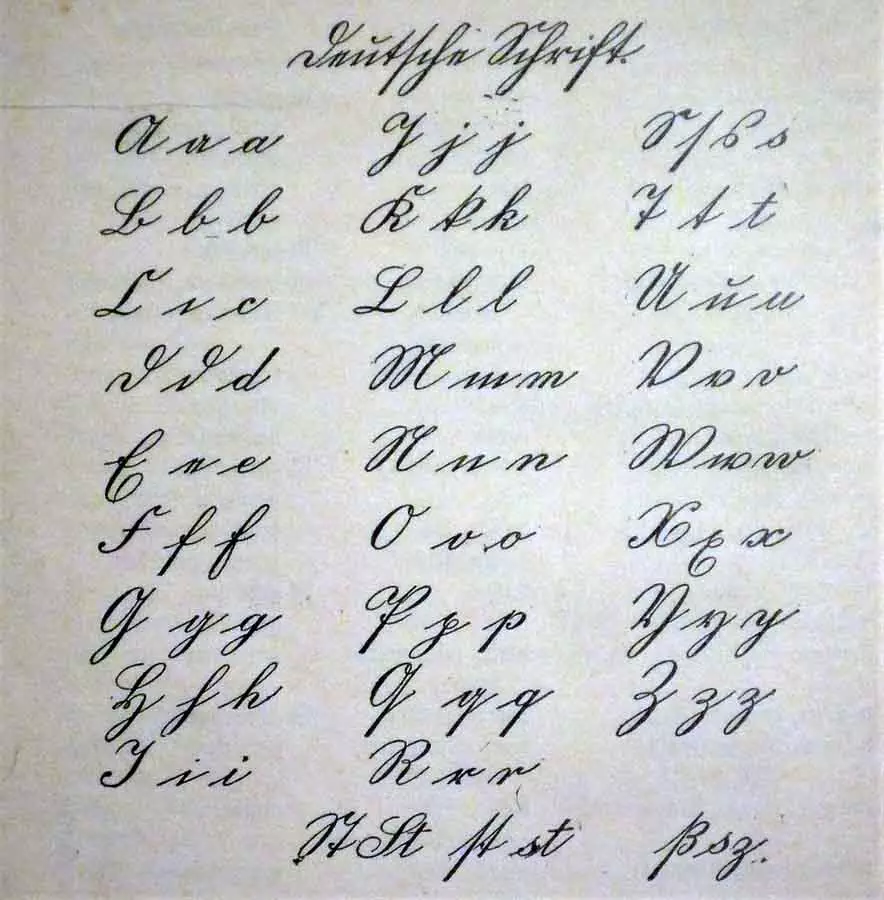 Deutsche Schrift.
A a a J j j S ſ s s
B b b K k k T t t
C c c L l l U u u
D d d M m m V v v
E e e N n n W w w
F f f O o o X x x
G g g P p p Y y y
H h h Q q q Z z z
I i i R r r
St St st st ß sz.